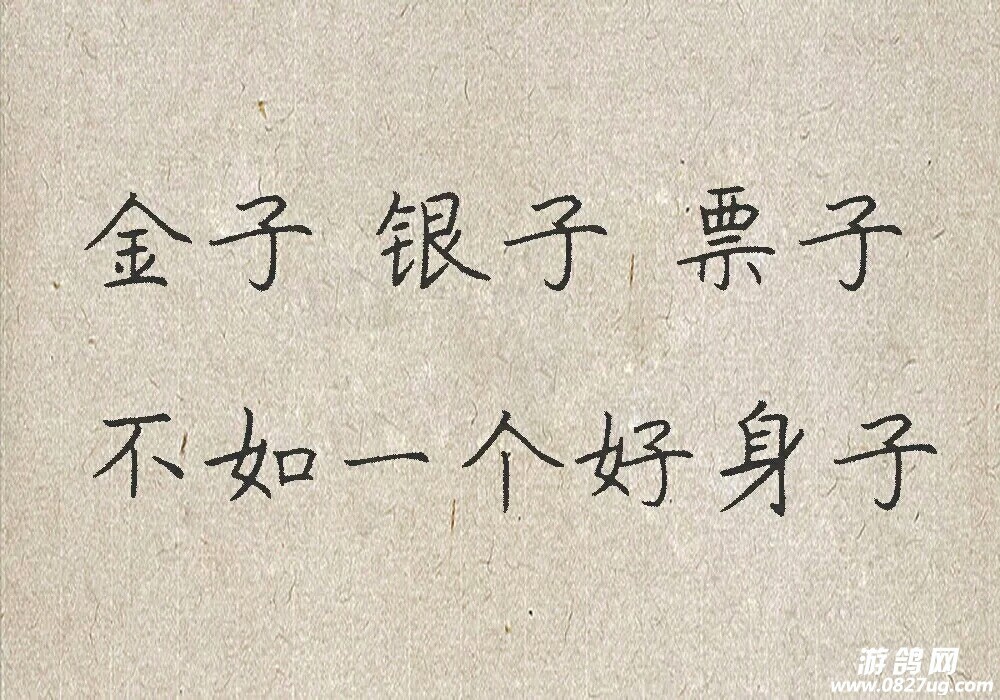 金子 银子 票子
不如一个好身子
游鸽网
www.0827ug.com